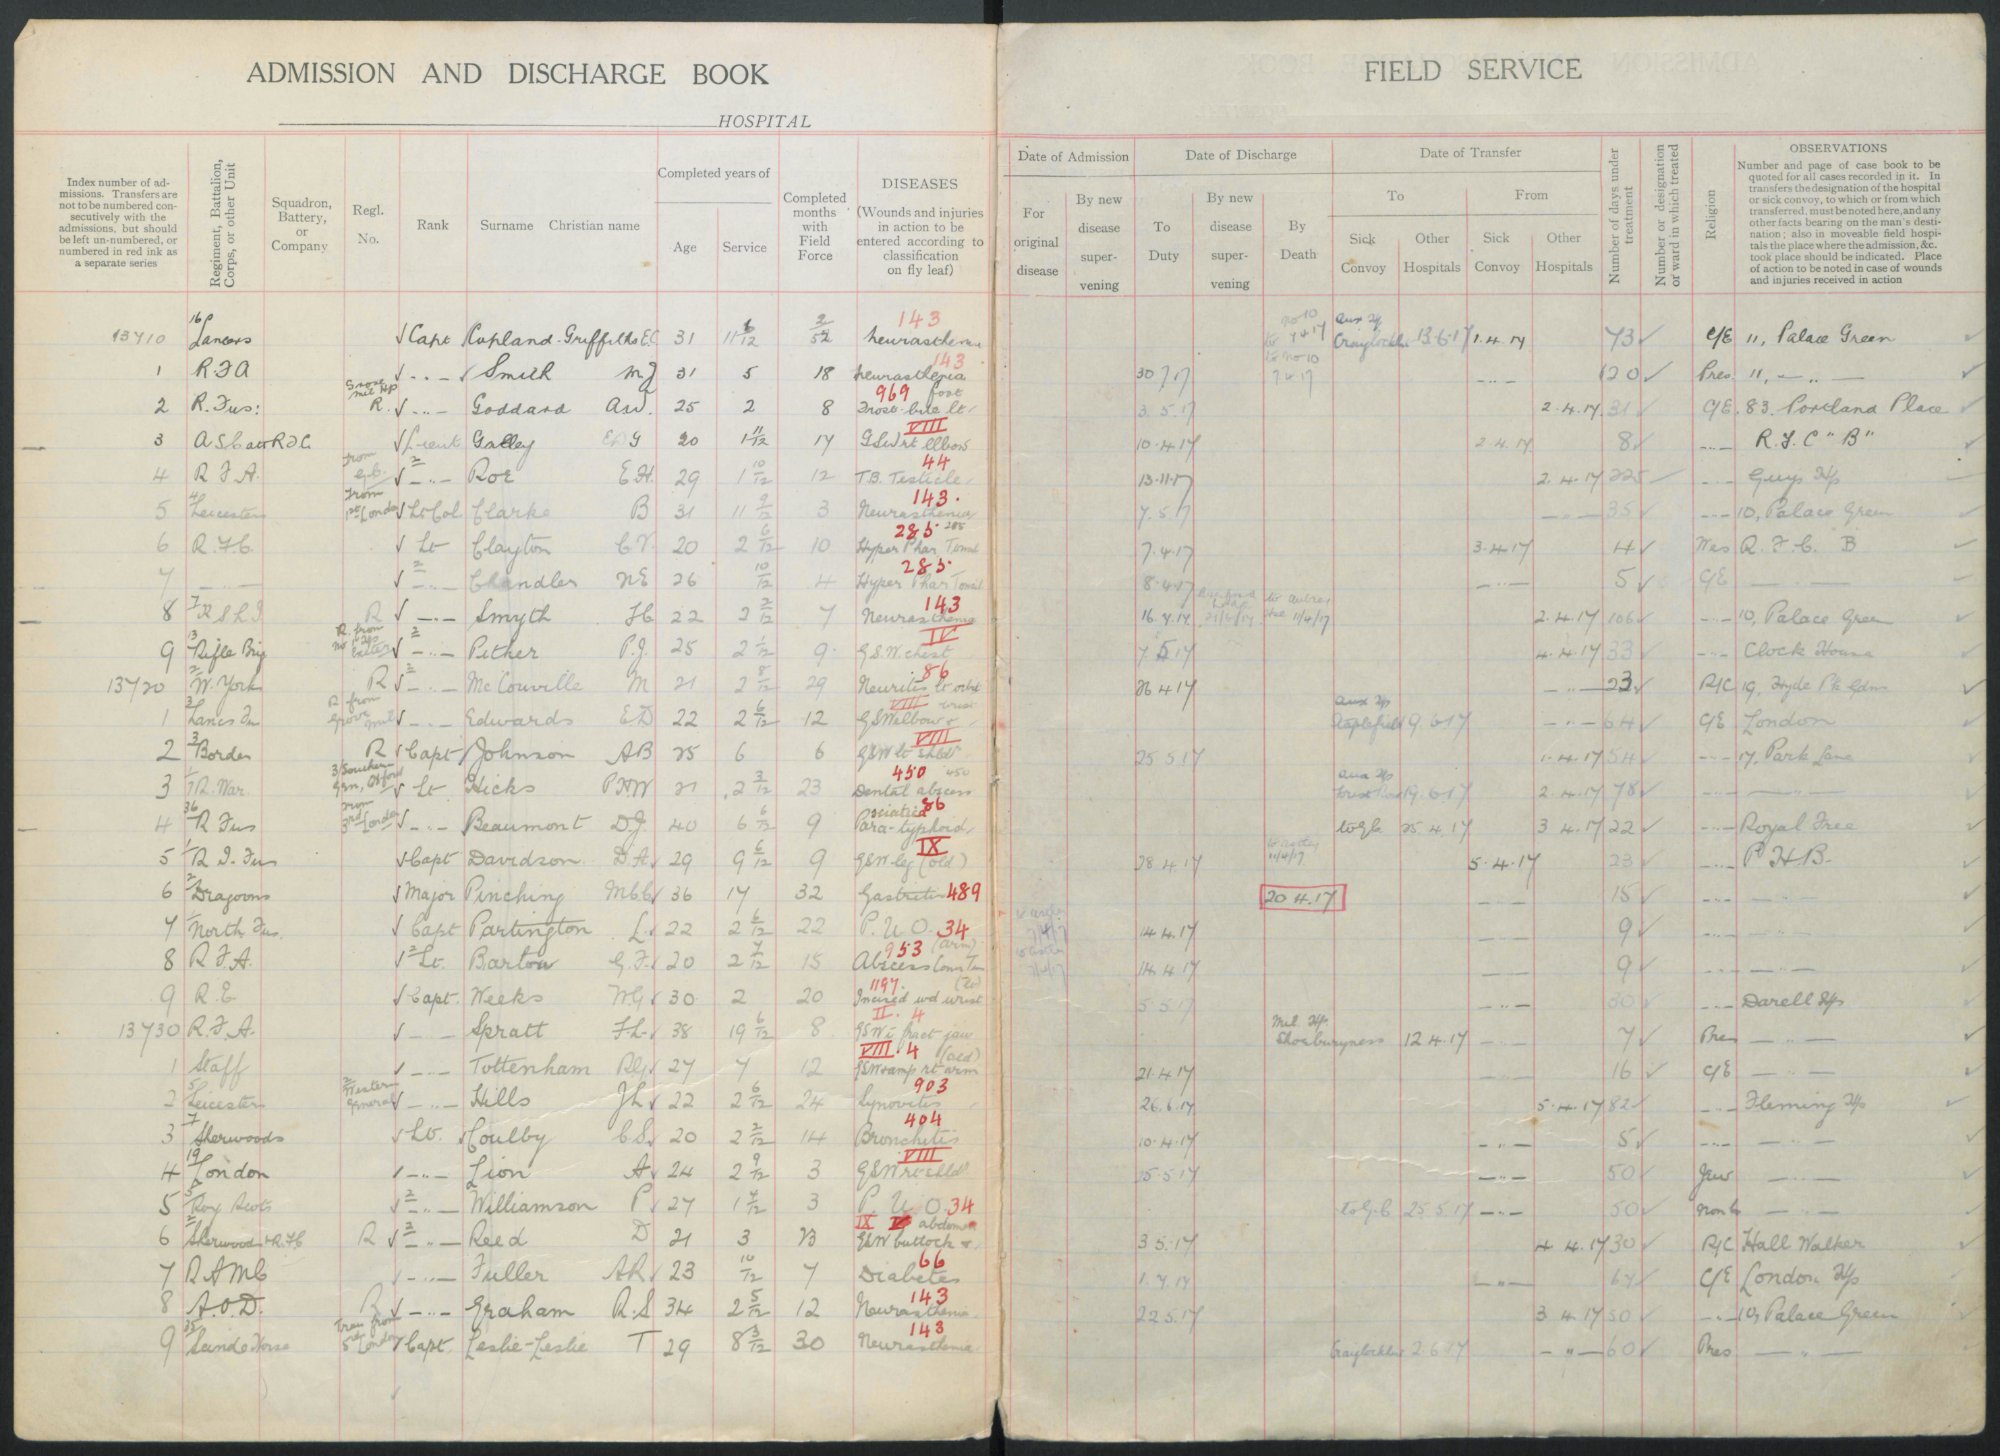 ADMISSION AND DISCHARGE BOOK
HOSPITAL
FIELD SERVICE
Index number of admissions. Transfers are not to be numbered consecutively with the admissions, but should be left un-numbered, or numbered in red ink as a separate series
Regiment, Battalion, Corps, or other Unit
Squadron, Battery, or Company
Regl. No.
Rank
Surname Christian name
Completed years of
Age Service
Completed months with Field Force
DISEASES
(Wounds and injuries in action to be entered according to classification on fly leaf)
Date of Admission
For original disease
By new disease supervening
Date of Discharge
To Duty
By new disease supervening
By Death
Date of Transfer
To
Sick Convoy
Other Hospitals
From
Sick Convoy
Other Hospitals
Number of days under treatment
Number or designation or ward in which treated
Religion
OBSERVATIONS
Number and page of case book to be quoted for all cases recorded in it. In transfers the designation of the hospital or sick convoy, to which or from which transferred, must be noted here, and any other facts bearing on the man's destination; also in moveable field hospitals the place where the admission, &c. took place should be indicated. Place of action to be noted in case of wounds and injuries received in action
13710 16 Lancers Capt Copland-Griffiths 31 11 6/12 2/52 Neurasthenia 143 Craiglockhart 13.6.17 1.4.17 73 C/E 11, Palace Green
1 R.F.A. Smith M J 31 5 18 Neurasthenia 143 30 7 17 120 Pres 11, — " —
2 R. Fus: R. Goddard 25 2 8 Frost-bite lt foot 969 3.5.17 2.4.17 31 C/E 83. Portland Place
3 Lieut Gatley 20 1 11/12 17 G.S.W rt Elbow VIII 10.4.17 2.4.17 8 R.F.C "B"
4 R F A. Roe E H. 29 1 10/12 12 T.B. Testicle 44 13.11.17 2.4.17 225 Guys Hp
5 4 Leicesters Lt Col Clarke B 31 11 9/12 3 Neurasthenia 143. 7.5.17 35 10, Palace Green
6 R.F.C. Lt Clayton C.V. 20 2 6/12 10 Hyper Phar Tonsil 285 7.4.17 3.4.17 4 Wes R.F.C. B
7 — Chandler N E 26 10/12 4 Hyper Phar Tonsil 285 8.4.17 5 C/E
8 7 R Smyth 22 2 2/12 7 Neurasthenia 143 16.7.17 2.4.17 106 10, Palace Green
9 3 Rifle Brig 2 Pether P.J. 25 2 1/12 9 G.S.W. chest IV 7.5.17 4.4.17 33 Clock House
13720 2 W. York R 2 McConville M 21 2 8/12 29 Neuritis 86 26 4 17 23 R/C 19, Hyde Pk Gdns
1 3 Lancs Fu Edwards E D 22 2 6/12 12 VIII 9.6.17 64 C/E London
2 3 Border R Capt Johnson A B 25 6 6 G.S.W lt shldr VIII 25 5 17 1.4.17 54 17, Park Lane
3 R. War. 3/Southern Gen, Oxford Lt Hicks P H W 21 2 3/12 23 Dental abscess 450 19.6.17 2.4.17 78
4 36 R Fus from 3rd London Beaumont D.J. 40 6 6/12 9 Para-typhoid sciatica 86 to G.B. 25.4.17 3 4.17 22 Royal Free
5 R.I. Fus Capt Davidson D A 29 9 6/12 9 G.S.W leg (old) IX 28 4 17 5.4.17 23 P H.B.
6 2 Dragoons Major Pinching 36 17 32 Gastritis 489 20 4.17 15
7 North Fus. Capt Partington L. 22 2 6/12 22 P. U. O. 34 14 4.17 9
8 R.F.A. 2 Lt. Barton G.F. 20 2 7/12 15 Abscess (arm) 953 14.4.17 9
9 R.E. Capt. Weeks W G 30 2 20 Incised wd wrist 1197. 5.5.17 30 Darell Hp
13730 R.F.A. Spratt F L. 38 19 6/12 8 fract jaw II. 4 Mil. Hp. Shoeburyness 12 4.17 7 Pres
1 Staff Tottenham 27 7 12 G.S.W amp rt arm (old) VIII. 4 21.4.17 16 C/E
2 5 Leicesters Western General Hills J L 22 2 6/12 24 Synovitis 903 26.6.17 5.4.17 82 Fleming Hp
3 7 Sherwoods Lt. Coulby C.S. 20 2 2/12 14 Bronchitis 404 10.4.17 5
4 19 London Lion A 24 2 9/12 3 VIII 25.5.17 50 Jew
5 5 Roy Scots 2 Williamson P 27 1 4/12 3 P. U. O. 34 to G.B 25.5.17 50
6 2 Sherwood R 2 Reed D 21 3 23 G.S.W buttock & abdomen IX 3 5.17 4 4.17 30 R/C Hall Walker
7 R A M C Fuller A R 23 10/12 7 Diabetes 66 1.7.17 C/E London Hp
8 A.O.D. R Graham R.S 34 2 5/12 12 Neurasthenia 143 22 5.17 3 4.17 50 10, Palace Green
9 35 Scinde Horse Capt. Leslie-Leslie T 29 8 3/12 30 Neurasthenia 143 Craiglockhart 2.6.17 60 Pres